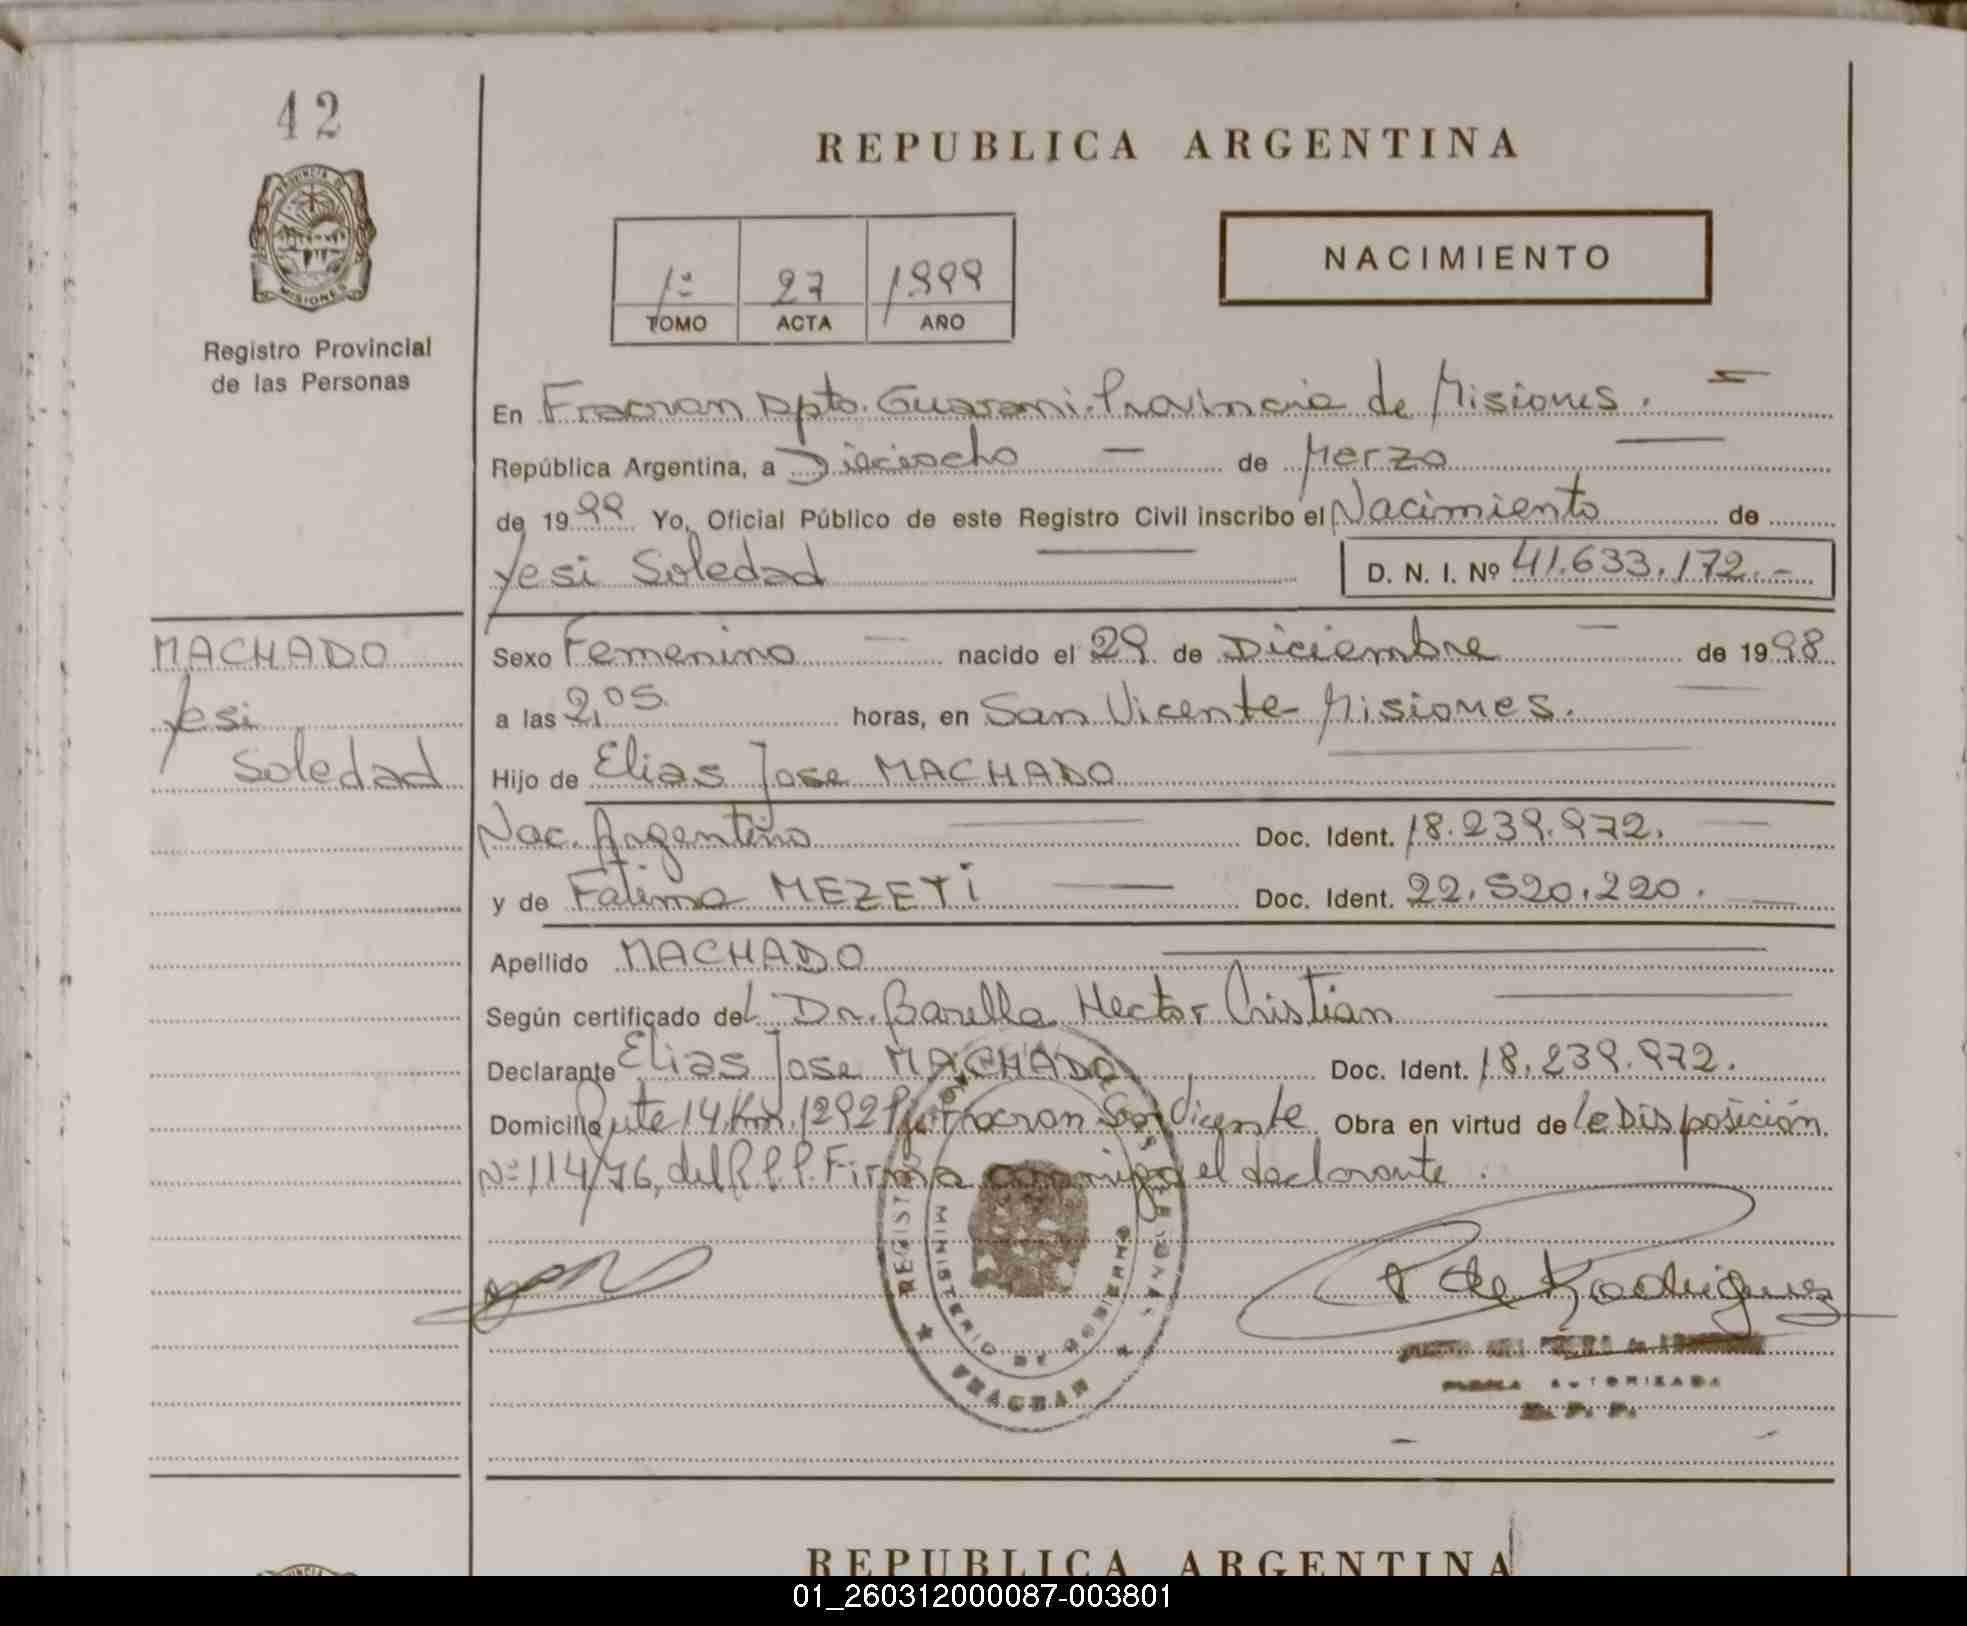 42
REPUBLICA ARGENTINA
PROVINCIA DE
MISIONES
Registro Provincial
de las Personas
1º 27 1999
TOMO ACTA AÑO
NACIMIENTO
En Fracran Dpto. Guarani. Provincia de Misiones.
República Argentina, a Dieciocho — de Marzo
de 1999 Yo, Oficial Público de este Registro Civil inscribo el Nacimiento de
Yesi Soledad D. N. I. Nº 41.633.172.-
MACHADO
Yesi
Soledad
Sexo Femenino — nacido el 29 de Diciembre — de 1998
a las 2,05 horas, en San Vicente-Misiones.
Hijo de Elias Jose MACHADO
Nac. Argentino Doc. Ident. 18.239.972.
y de Fatima MEZETI Doc. Ident. 22.520.220.
Apellido MACHADO
Según certificado del Dr. Barella Hector Cristian
Declarante Elias Jose MACHADO Doc. Ident. 18.239.972.
Domicilio Rute 14 Km. 1292 Fracran San Vicente Obra en virtud de la Disposición
Nº 114/76, del R.P.P. Firma conmigo el declarante.
MINISTERIO DE GOBIERNO
FRACRAN
P de Rodriguez
AUTORIZADA
REPUBLICA ARGENTINA
01_260312000087-003801